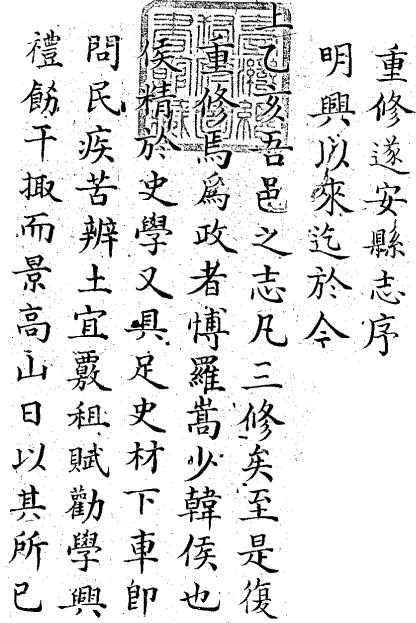 重修遂安縣志序
明興以來迄於今
上乙亥吾邑之志凡三修矣至是復
重修焉爲政者愽羅嵩少韓侯也
侯精於史學又具足史材下車卽
問民疾苦辨土宜覈租賦勸學興
禮飭干掫而景高山日以其所已